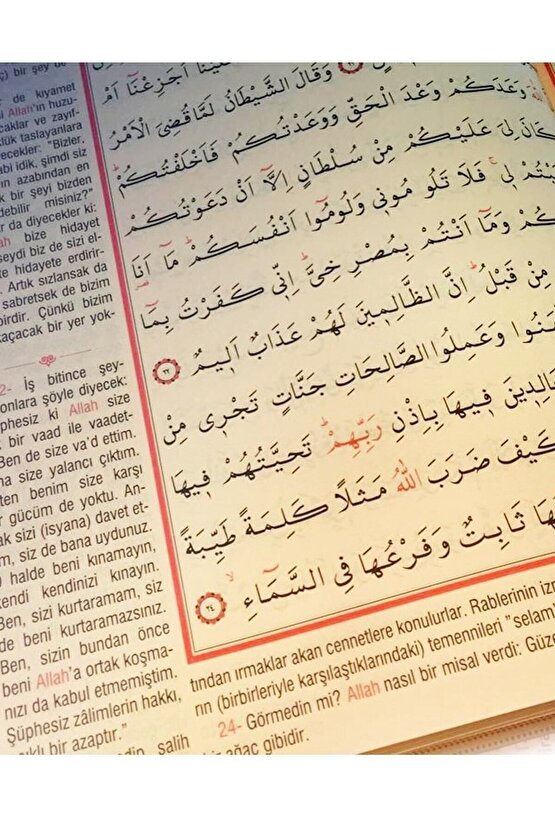 عَلَيْنَٓا اَجَزِعْنَٓا اَمْ
وَقَالَ الشَّيْطَانُ لَمَّا قُضِيَ الْاَمْرُ
وَعَدَكُمْ وَعْدَ الْحَقِّ وَوَعَدْتُكُمْ فَاَخْلَفْتُكُمْ
كَانَ لِيَ عَلَيْكُمْ مِنْ سُلْطَانٍ اِلَّٓا اَنْ دَعَوْتُكُمْ
فَلَا تَلُومُونِي وَلُومُٓوا اَنْفُسَكُمْ مَٓا اَنَا۬
وَمَٓا اَنْتُمْ بِمُصْرِخِيَّ اِنِّي كَفَرْتُ بِمَٓا
مِنْ قَبْلُ اِنَّ الظَّالِمِينَ لَهُمْ عَذَابٌ اَلِيمٌ ٢٢
وَعَمِلُوا الصَّالِحَاتِ جَنَّاتٍ تَجْرِي مِنْ
فِيهَا بِاِذْنِ رَبِّهِمْ تَحِيَّتُهُمْ فِيهَا
كَيْفَ ضَرَبَ اللّٰهُ مَثَلًا كَلِمَةً طَيِّبَةً
ثَابِتٌ وَفَرْعُهَا فِي السَّمَٓاءِ ٢٤
bir şey de
de kıyamet
Allah'ın huzu-
caklar ve zayıf-
lük taslayanlara
ecekler: "Bizler,
abi idik, şimdi siz
ın azabından en
k bir şeyi bizden
debilir misiniz?"
r da diyecekler ki:
bize hidayet
seydi biz de sizi el-
te hidayete erdirir-
. Artık sızlansak da
sabretsek de bizim
birdir. Çünkü bizim
kaçacak bir yer yok-
2- İş bitince şey-
onlara şöyle diyecek:
phesiz ki Allah size
k bir vaad ile vaadet-
Ben de size va'd ettim.
na size yalancı çıktım.
ten benim size karşı
r gücüm de yoktu. An-
ak sizi (isyana) davet et-
m, siz de bana uydunuz.
) halde beni kınamayın,
kendi kendinizi kınayın.
Ben, sizi kurtaramam, siz
de beni kurtaramazsınız.
Ben, sizin bundan önce
beni Allah'a ortak koşma-
nızı da kabul etmemiştim.
Şüphesiz zâlimlerin hakkı,
bir azaptır."
salih
tından ırmaklar akan cennetlere konulurlar. Rablerinin iz
rın (birbirleriyle karşılaştıklarındaki) temennileri "selam
24- Görmedin mi? Allah nasıl bir misal verdi: Güze
ağaç gibidir.